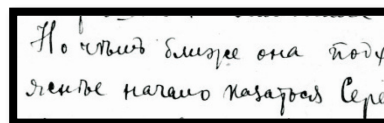 Но чѣмъ ближе она подх
яснѣе начало казаться Сере